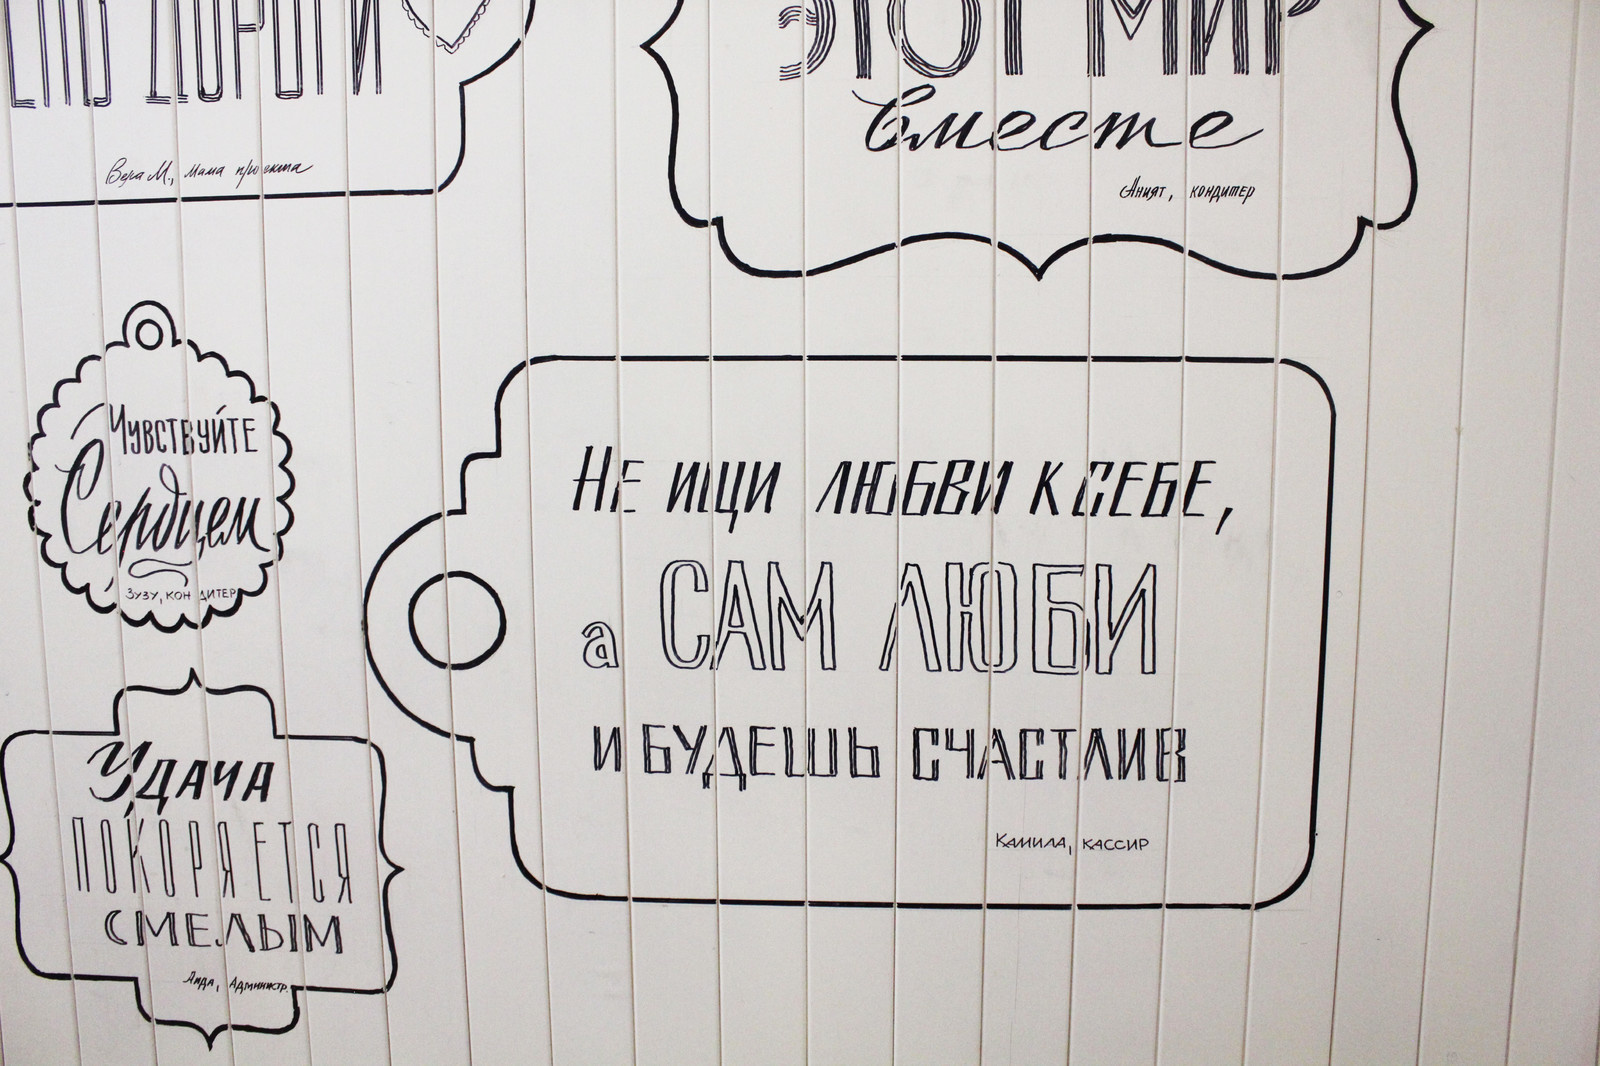 ДОРОГИ
Вера М., мама проекта
ЭТОТ МИР
вместе
Аният, кондитер
Чувствуйте
Сердцем
Зузу, кондитер
Не ищи любви к себе,
а САМ ЛЮБИ
и будешь счастлив
Камила, кассир
Удача
покоряется
смелым
Аида, Администр.